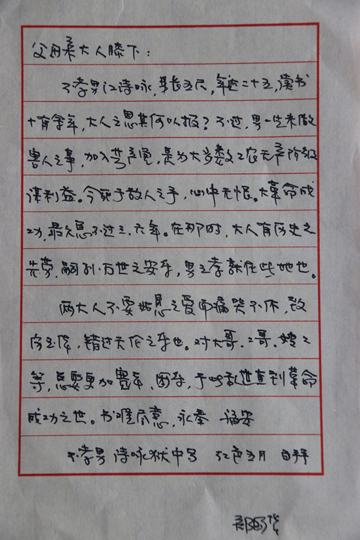 父母亲大人膝下：
不孝男江诗咏，身长五尺，年近二十五，读书
十有余年，大人之恩其何以报？不过，男一生未做
害人之事，加入共产党，是为大多数工农无产阶级
谋利益。今死于敌人之手，心中无恨。大革命成
功，最久总不过三、六年。在那时，大人有历史之
光荣，嗣列万世之安乐，男之孝就在些地也。
两大人不要姑息之爱而痛哭不休，致
伤玉体，错过天伦之乐也。对大哥、二哥、嫂之
等，总要更加，于敌世直到革命
成功之世。书难尽意，永，福安
不孝男诗咏狱中写 五月 日拜